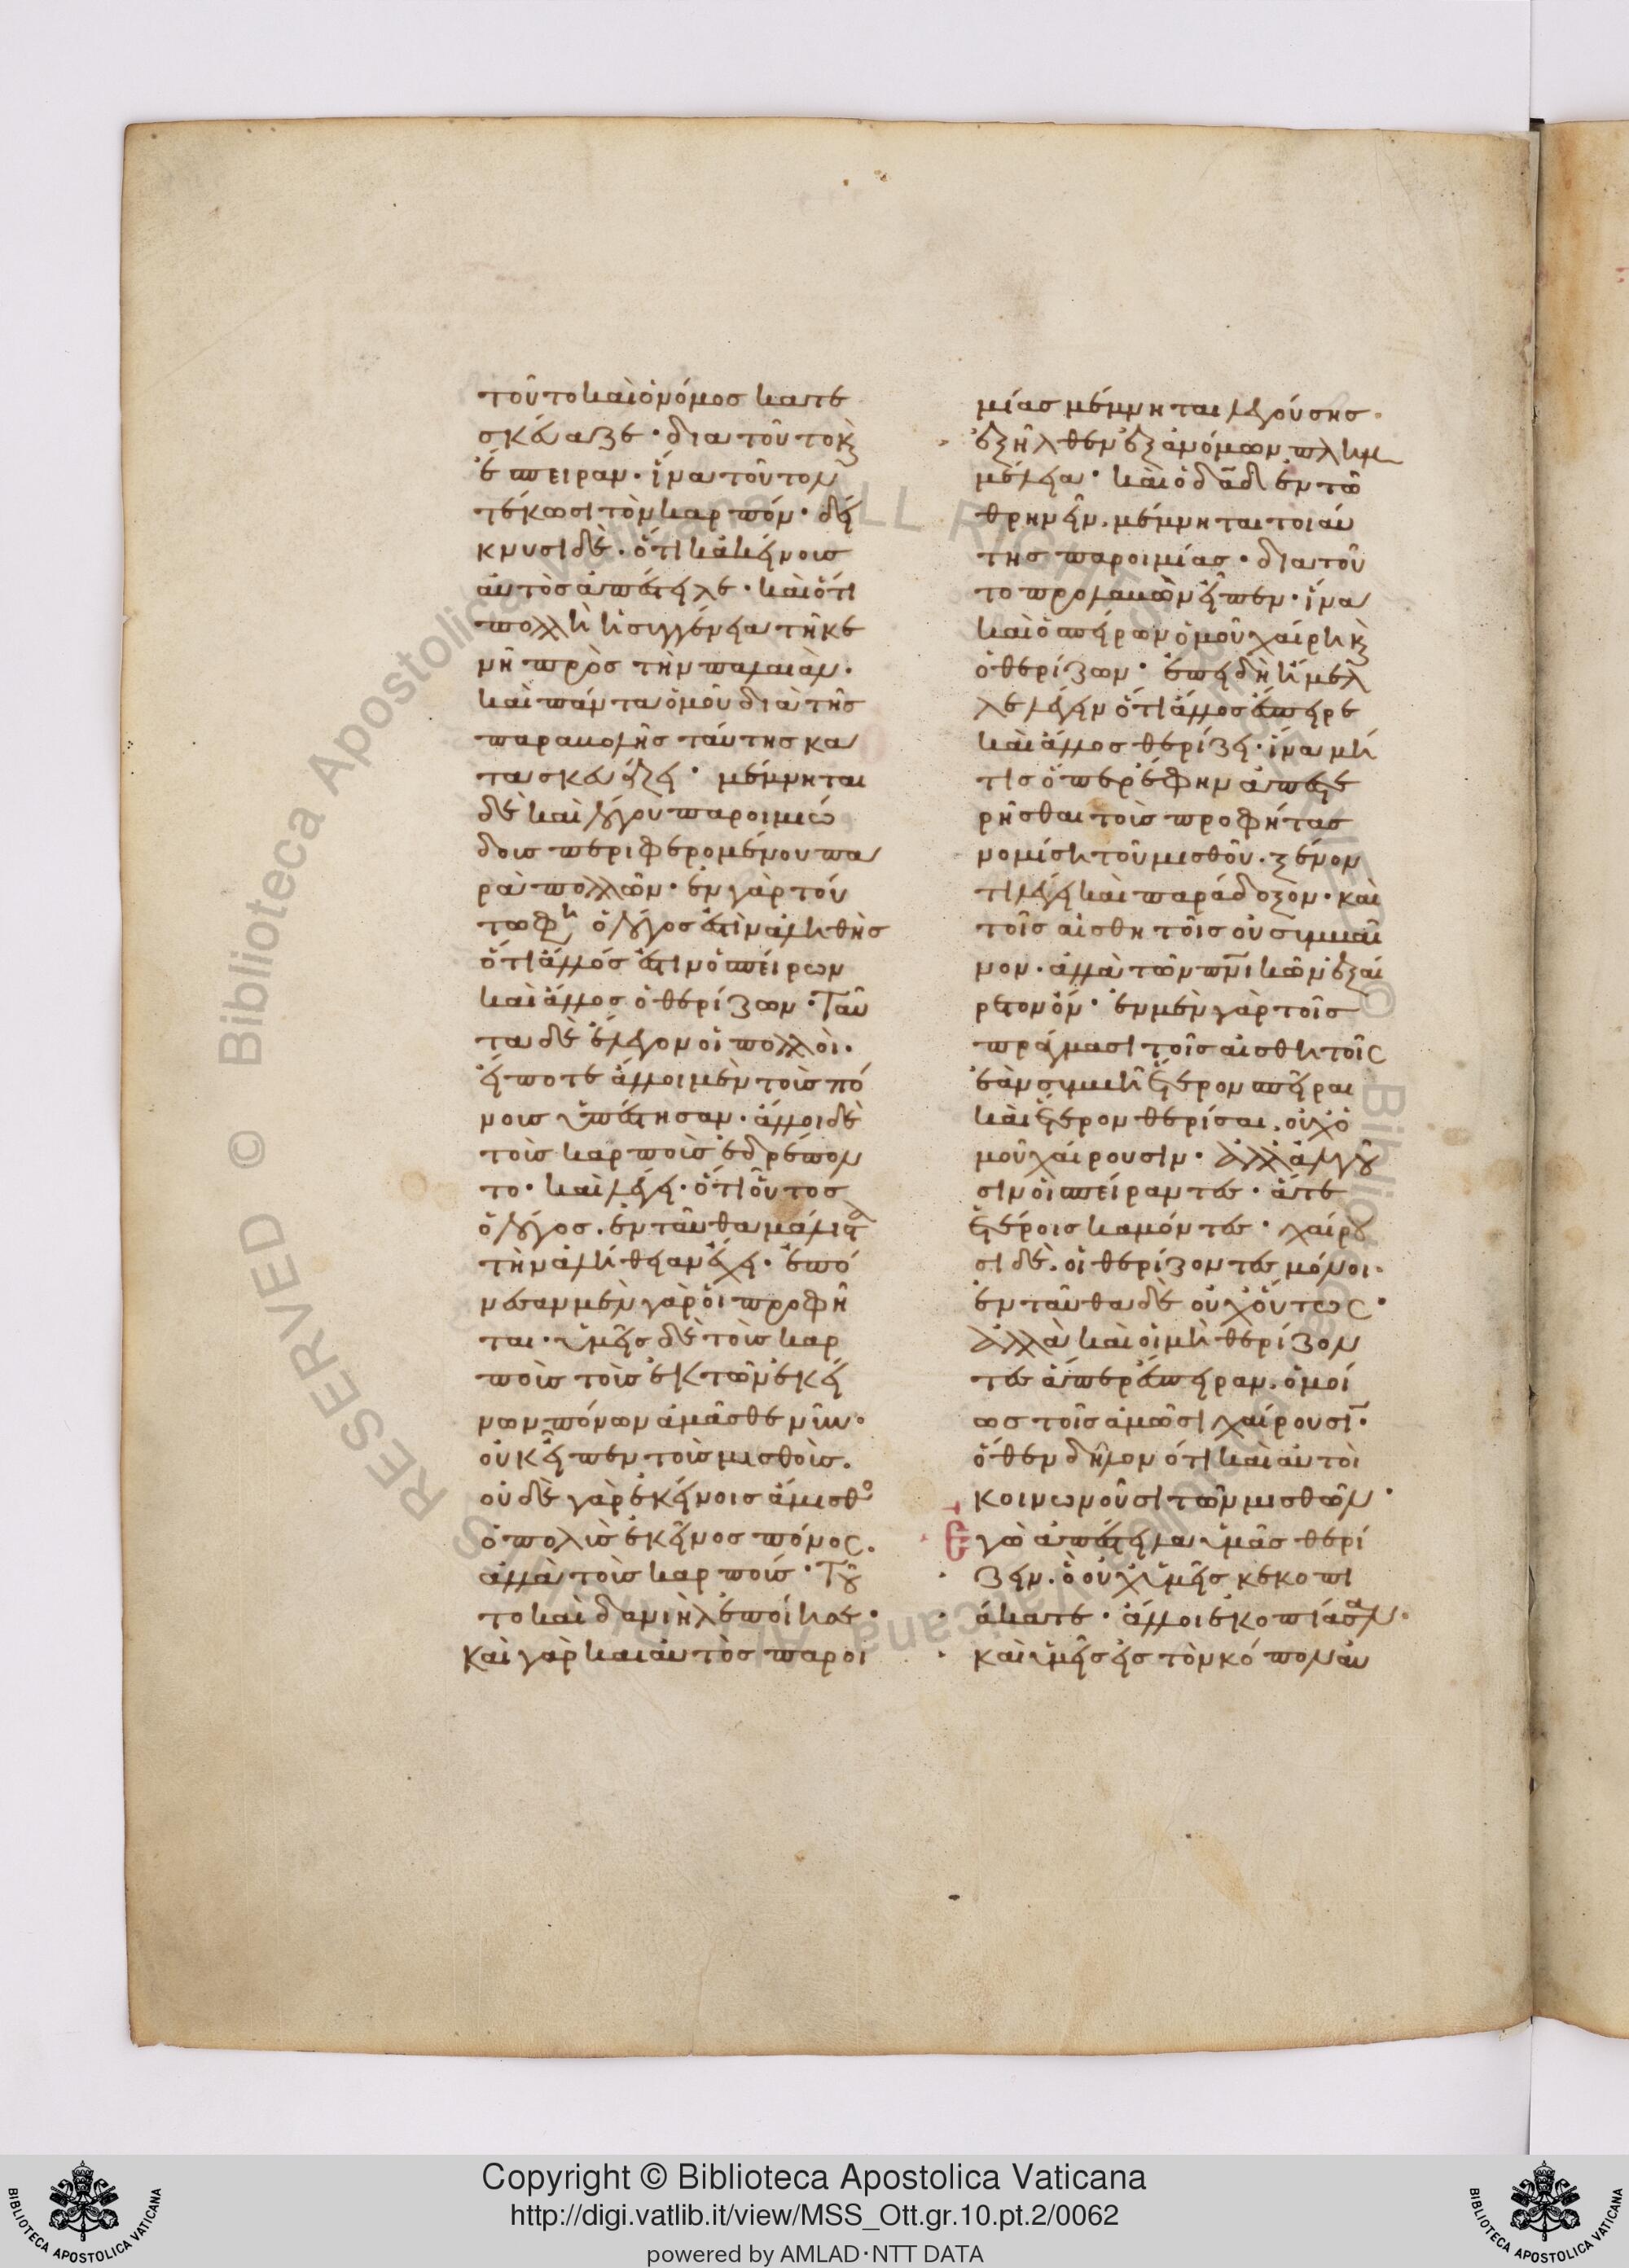 τοῦτο καὶ ὁ νόμος κατε
σκεύαζε · διατοῦτο κ(αὶ)
ἔσπειραν · ἵνα τοῦτον
τέκωσι τὸν καρπόν · δεί
κνυσι δὲ · ὅτι κἀκείνοις
αὐτὸς ἀπέστειλε · καὶ ὅτι
πολλὴ ἡ συγγένεια τῆ και
νῆ πρὸς τὴν παλαιάν ·
καὶ πάντα ὁμοῦ διὰ τῆς
παραβολῆς ταύτης κα
τασκευάζει · μέμνηται
δὲ καὶ λόγου παροιμιώ
δους περιφερομένου πα
ρὰ πολλῶν · ἐν γὰρ τού
τω φη(σὶν) ὁ λόγος ἐστὶν ἀληθὴς
ὅτι ἄλλός ἐστιν ὁ σπείρων
καὶ ἄλλος ὁ θερίζων · Ταῦ
τα δὲ ἔλεγον οἱ πολλοὶ ·
εἴποτε ἄλλοι μὲν τοὺς πό
νους ὑπέστησαν · ἄλλοι δὲ
τοὺς καρποὺς ἐδρέπον
το · καὶ λέγει · ὅτι οὗτος
ὁ λόγος · ἐνταῦθα μάλιστα
τὴν ἀλήθειαν ἔχει · ἐπό
νεσαν μὲν γὰρ οἱ προφῆ
ται · ὑμεῖς δὲ τοὺς καρ
ποὺς τοὺς ἐκ τῶν ἐκεί
νων πόνων ἀμᾶσθε νῦν ·
οὐκ εἶπεν τοὺς μισθοὺς ·
οὐδὲ γὰρ ἐκείνοις ἄμισθο(ς)
ὁ πολὺς ἐκεῖνος πόνος ·
ἀλλὰ τοὺς καρπούς · Τοῦ
το καὶ δανιὴλ ἐποίησε ·
καὶ γὰρ καὶ αὐτὸς παροι
μίας μέμνηται λεγούσης ·
ἐξῆλθεν ἐξ ἀνόμων πλημ
μέλεια · καὶ ὁ δα(υὶ)δ ἐν τῶ
θρηνεῖν · μέμνηται τοιαύ
της παροιμίας · διατοῦ
το προλαβὼν εἶπεν · ἵνα
καὶ ὁ σπείρων ὁμοῦ χαίρη κ(αὶ)
ὁ θερίζων · ἐπειδὴ ἤμελ
λε λέγειν ὅτι ἄλλος ἔσπειρε
καὶ ἄλλος θερίζει · ἵνα μή
τις ὅπερ ἔφην ἀπεστε
ρῆσθαι τοὺς προφήτας
νομίση τοῦ μισθοῦ · ξένον
τι λέγει καὶ παράδοξον · καὶ
τοῖς αἰσθητοῖς οὐ συμβαῖ
νον · ἀλλὰ τῶν πν(ευματ)ικῶν ἐξαί
ρετον ὄν · ἐν μὲν γὰρ τοῖς
πράγμασι τοῖς αἰσθητοῖς
ἐὰν συμβῆ ἕτερον σπεῖραι
καὶ ἕτερον θερίσαι · οὐχ ὁ
μοῦ χαίρουσιν · ἀλλ' ἀλγοῦ
σιν οἱ σπείραντες · ἅτε
ἑτέροις καμόντες · χαίρου
σι δὲ · οἱ θερίζοντες μόνοι ·
ἐνταῦθα δὲ οὐχ οὕτως ·
ἀλλὰ καὶ οἱ μὴ θερίζον
τες ἅπερ ἔσπειραν · ὁμοί
ως τοῖς ἀμῶσι χαίρουσι(ν) ·
ὅθεν δῆλον ὅτι καὶ αὐτοὶ
κοινωνοῦσι τῶν μισθῶν ·
Ἐγὼ ἀπέστειλα ὑμᾶς θερί
ζειν · ὃ οὐχ ὑμεῖς κεκοπι
άκατε · ἄλλοι ἐκοπίασαν ·
καὶ ὑμεῖς εἰς τὸν κόπον αὐ
Copyright © Biblioteca Apostolica Vaticana
http://digi.vatlib.it/view/MSS_Ott.gr.10.pt.2/0062
powered by AMLAD·NTT DATA